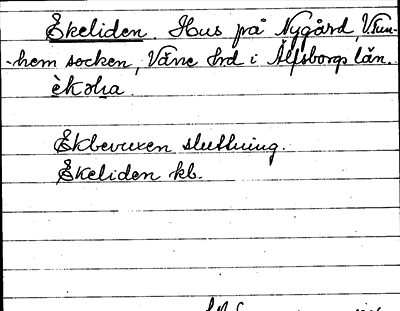 Ekeliden. Hus på Nygård, V. Tun-
-hem socken, Väne hrd i Älfsborgs län.
Ekbevuxen sluttning.
Ekeliden kb.